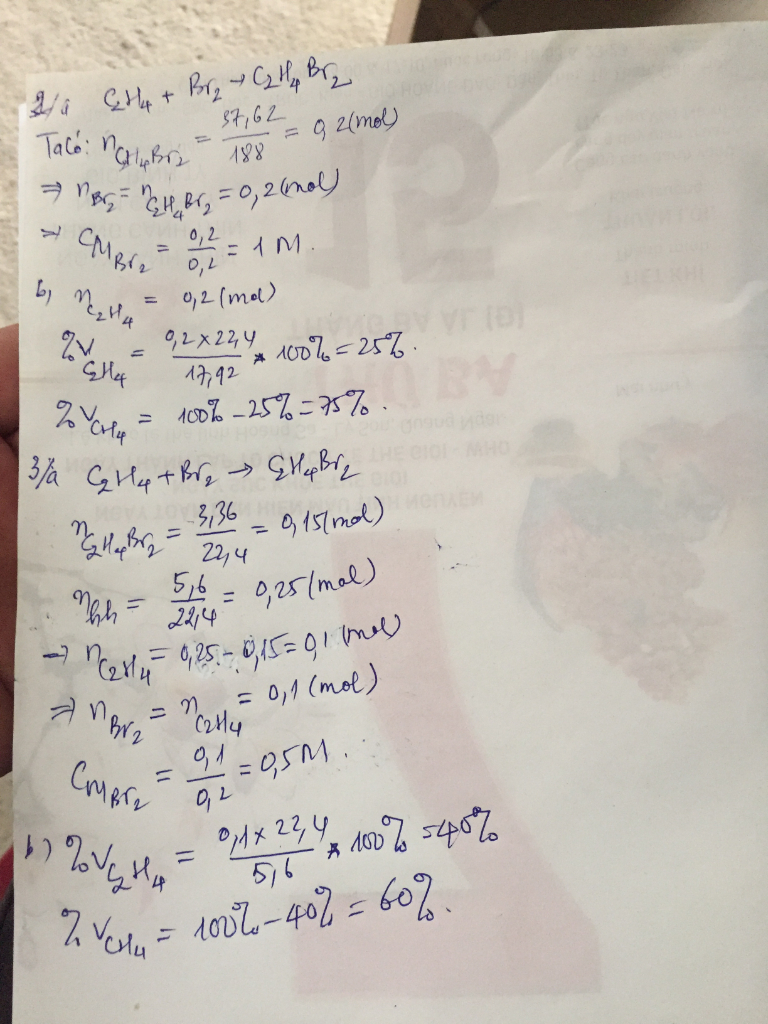 2/a C2H4 + Br2 → C2H4Br2
Ta có: nC2H4Br2 = 37,62/188 = 0,2(mol)
⇒ nBr2 = nC2H4Br2 = 0,2(mol)
⇒ CMBr2 = 0,2/0,2 = 1 M.
b, nC2H4 = 0,2(mol)
%VC2H4 = 0,2 x 22,4/17,92 * 100% = 25%.
%VCH4 = 100% - 25% = 75%.
3/a C2H4 + Br2 → C2H4Br2
nC2H4Br2 = 3,36/22,4 = 0,15(mol)
nhh = 5,6/22,4 = 0,25(mol)
→ nC2H4 = 0,25 - 0,15 = 0,1(mol)
⇒ nBr2 = nC2H4 = 0,1(mol)
CMBr2 = 0,1/0,2 = 0,5M.
b) %VC2H4 = 0,1 x 22,4/5,6 * 100% = 40%
%VCH4 = 100% - 40% = 60%.